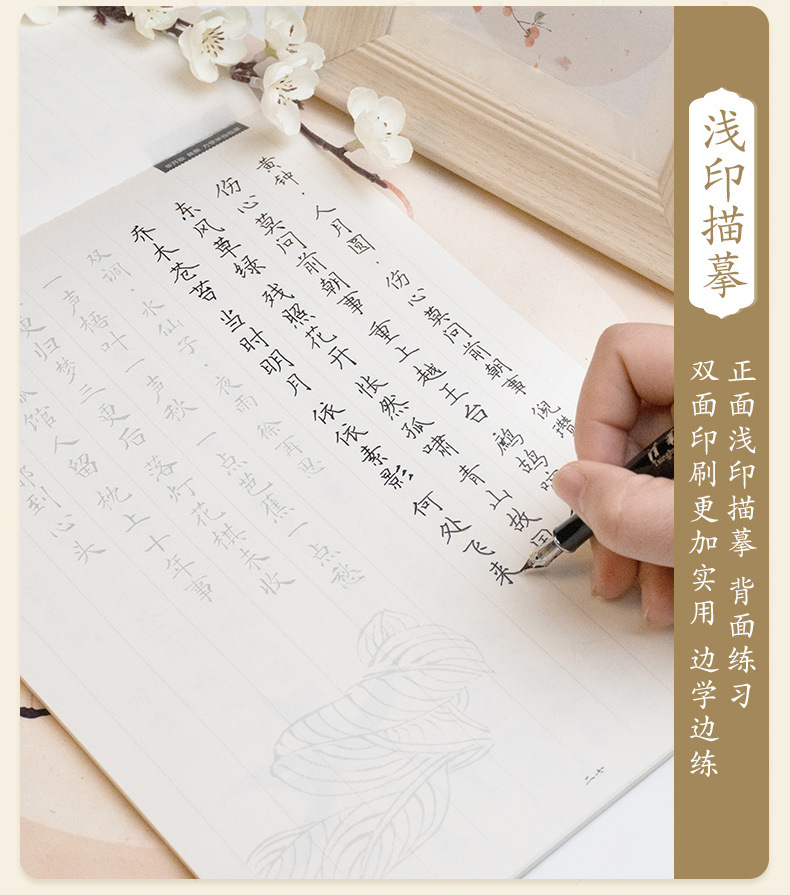 浅印描摹
正面浅印描摹 背面练习
双面印刷更加实用 边学边练
黄钟·人月圆·伤心莫问前朝事 倪瓒
伤心莫问前朝事 重上越王台 鹧鸪啼
东风草绿 残照花开 怅然孤啸 青山故国
乔木苍苔 当时明月 依依素影 何处飞来
双调·水仙子·夜雨 徐再思
一声梧叶一声秋 一点芭蕉一点愁
更归梦三更后 落灯花棋未收
孤馆人留 枕上十年事
到心头
二七